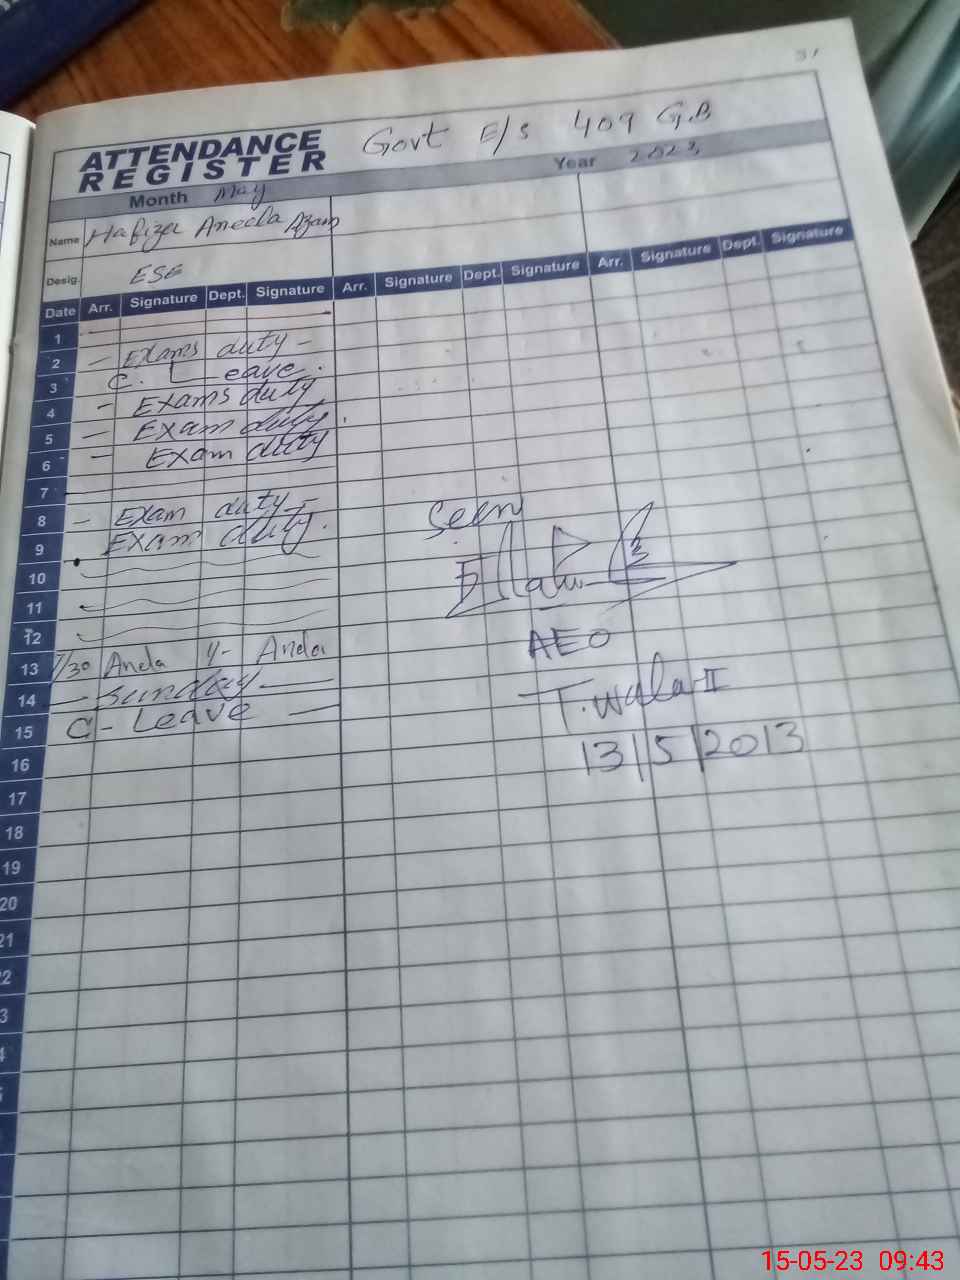 31
ATTENDANCE REGISTER Govt E/S 409 G.B
Month May Year 2023
Name Hafiza Aneela Azam
Desig. ESE
Date Arr. Signature Dept. Signature Arr. Signature Dept. Signature Arr. Signature Dept. Signature
1
2 - Exams duty -
3 C. Leave.
4 - Exams duty
5 - Exam duty
6 - Exam duty
7
8 - Exam duty -
9 Exam duty.
10
11
12
13 7/30
14 - Sunday -
15 C - Leave -
16
17
18
19
20
21
22
Seen
AEO
T.wala-II
13/5/2013
15-05-23 09:43